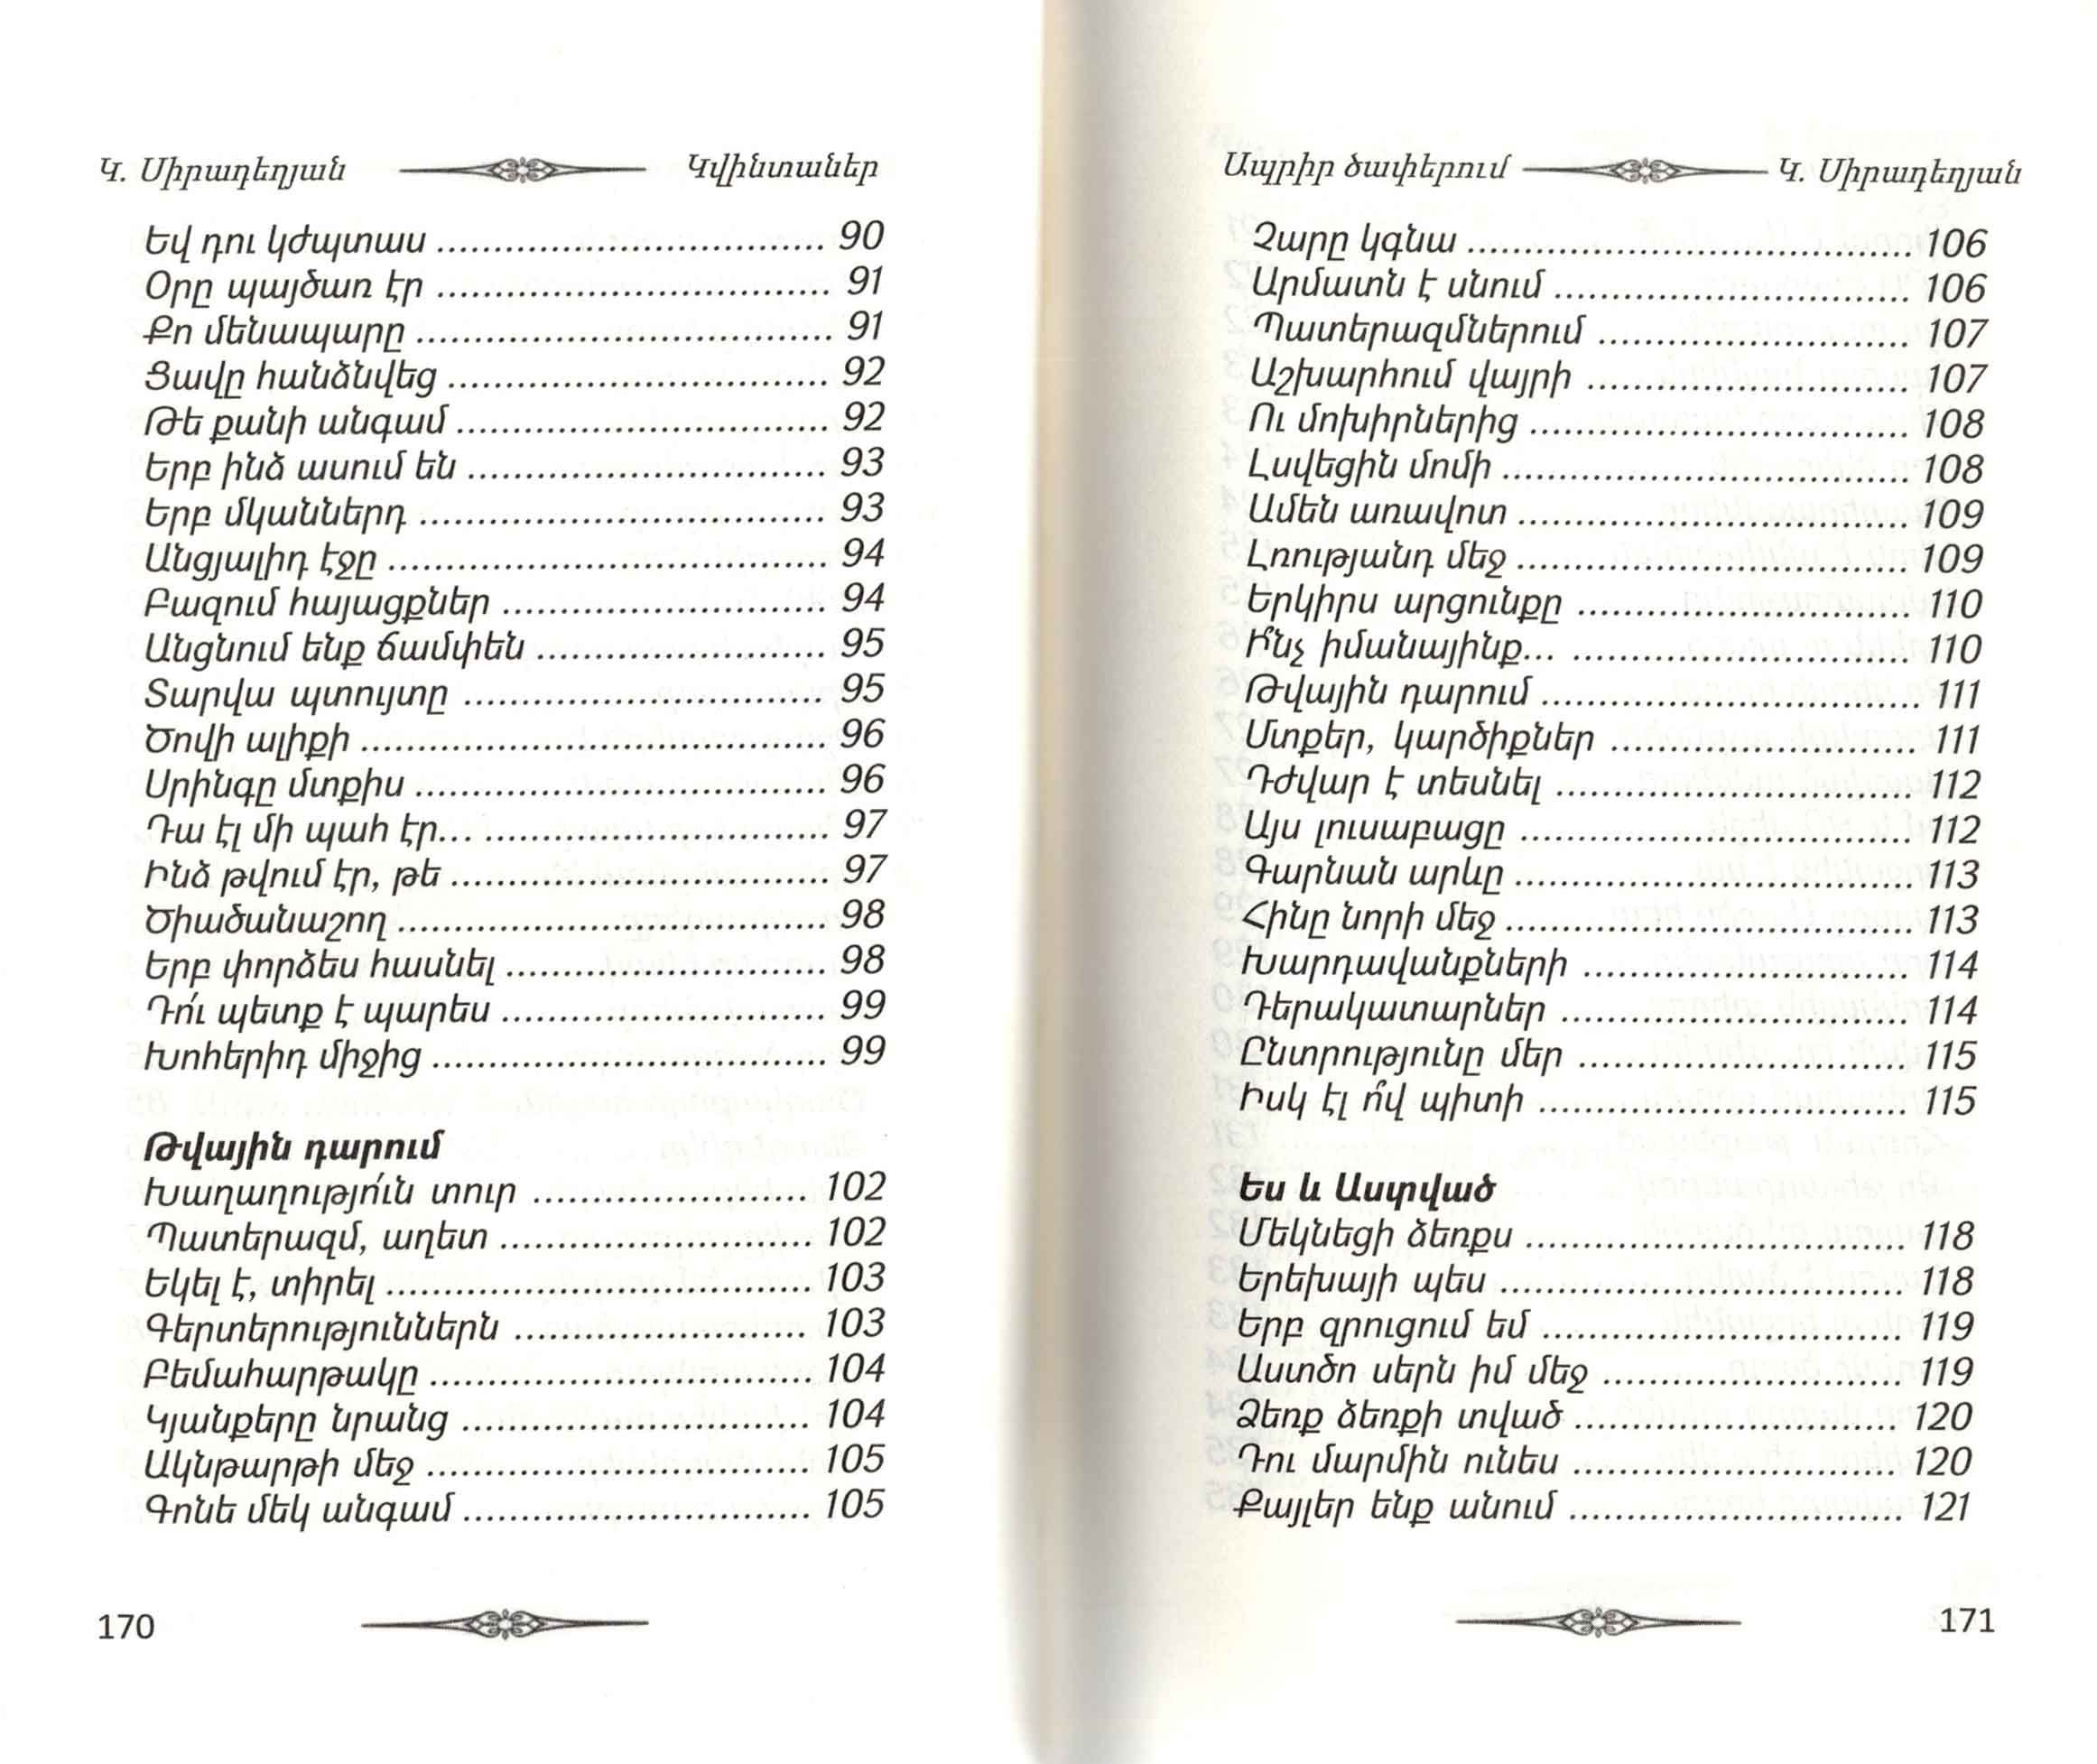 Կ. Սիրադեղյան Կվինտաներ
Եվ դու կժպտաս ................................. 90
Օրը պայծառ էր ................................. 91
Քո մենապարը ................................... 91
Ցավը հանձնվեց ................................ 92
Թե քանի անգամ ............................... 92
Երբ ինձ ասում են .............................. 93
Երբ մկանններդ .................................. 93
Անցյալիդ էջը ..................................... 94
Բազում հայացքներ ........................... 94
Անցնում ենք ճամփեն ........................ 95
Տարվա պտույտը .............................. 95
Ծովի ալիքի ....................................... 96
Սրինգը մտքիս .................................. 96
Դա էլ մի պահ էր... ........................... 97
Ինձ թվում էր, թե ................................ 97
Ծիածանաշող .................................... 98
Երբ փորձես հասնել ........................... 98
Դո՛ւ պետք է պարես ........................... 99
Խոհերիդ միջից ................................. 99
Թվային դարում
Խաղաղությո՛ւն տուր ........................ 102
Պատերազմ, աղետ .......................... 102
Եկել է, տիրել .................................... 103
Գերտերություններն ......................... 103
Բեմահարթակը ................................ 104
Կյանքերը նրանց ............................. 104
Ակնթարթի մեջ ................................ 105
Գոնե մեկ անգամ ............................. 105
170
Ապրիր ծափերում Կ. Սիրադեղյան
Չարը կգնա ...................................... 106
Արմատն է սնում .............................. 106
Պատերազմներում .......................... 107
Աշխարհում վայրի ........................... 107
Ու մոխիրներից ................................ 108
Լսվեցին մոմի .................................. 108
Ամեն առավոտ ................................ 109
Լռությանդ մեջ ................................. 109
Երկիրս արցունքը ............................ 110
Ի՞նչ իմանայինք... ............................ 110
Թվային դարում ................................ 111
Մտքեր, կարծիքներ .......................... 111
Դժվար է տեսնել .............................. 112
Այս լուսաբացը ................................. 112
Գարնան արևը .................................. 113
Հինը նորի մեջ ................................... 113
Խարդավանքների ............................ 114
Դերակատարներ .............................. 114
Ընտրությունը մեր ............................ 115
Իսկ էլ ո՞վ պիտի ................................ 115
Ես և Աստված
Մեկնեցի ձեռքս ................................ 118
Երեխայի պես .................................. 118
Երբ զրուցում եմ ............................... 119
Աստծո սերն իմ մեջ .......................... 119
Ձեռք ձեռքի տված ............................ 120
Դու մարմին ունես ............................ 120
Քայլեր ենք անում ............................ 121
171